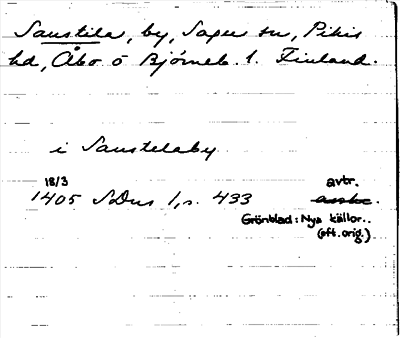 Saustila, by, Sagu sn, Pikis
hd, Åbo o Björneb. l. Finland.
i Saustelaby
18/3 avtr.
1405 SDns 1, s. 433
Grönblad: Nya källor..
(eft. orig.)